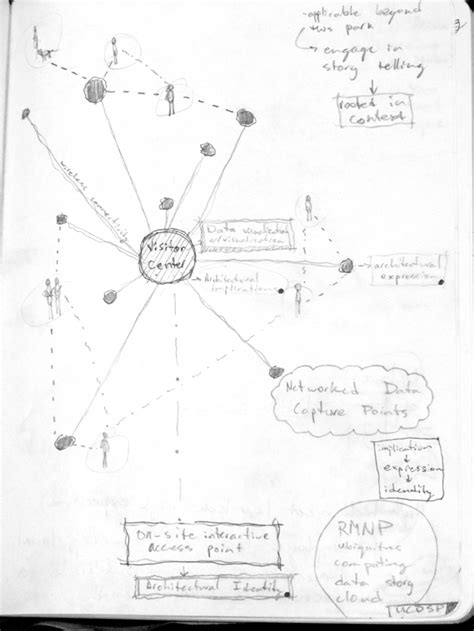 -applicable beyond
this park
engage in
story telling
rooted in
context
3
wireless connectivity
Visitor
Center
Data visualization
architectural
expression
Architectural
implications
Networked Data
Capture Points
implication
expression
identity
On-site interactive
access point
Architectural Identity
RMNP
ubiquitous
computing
data story
cloud